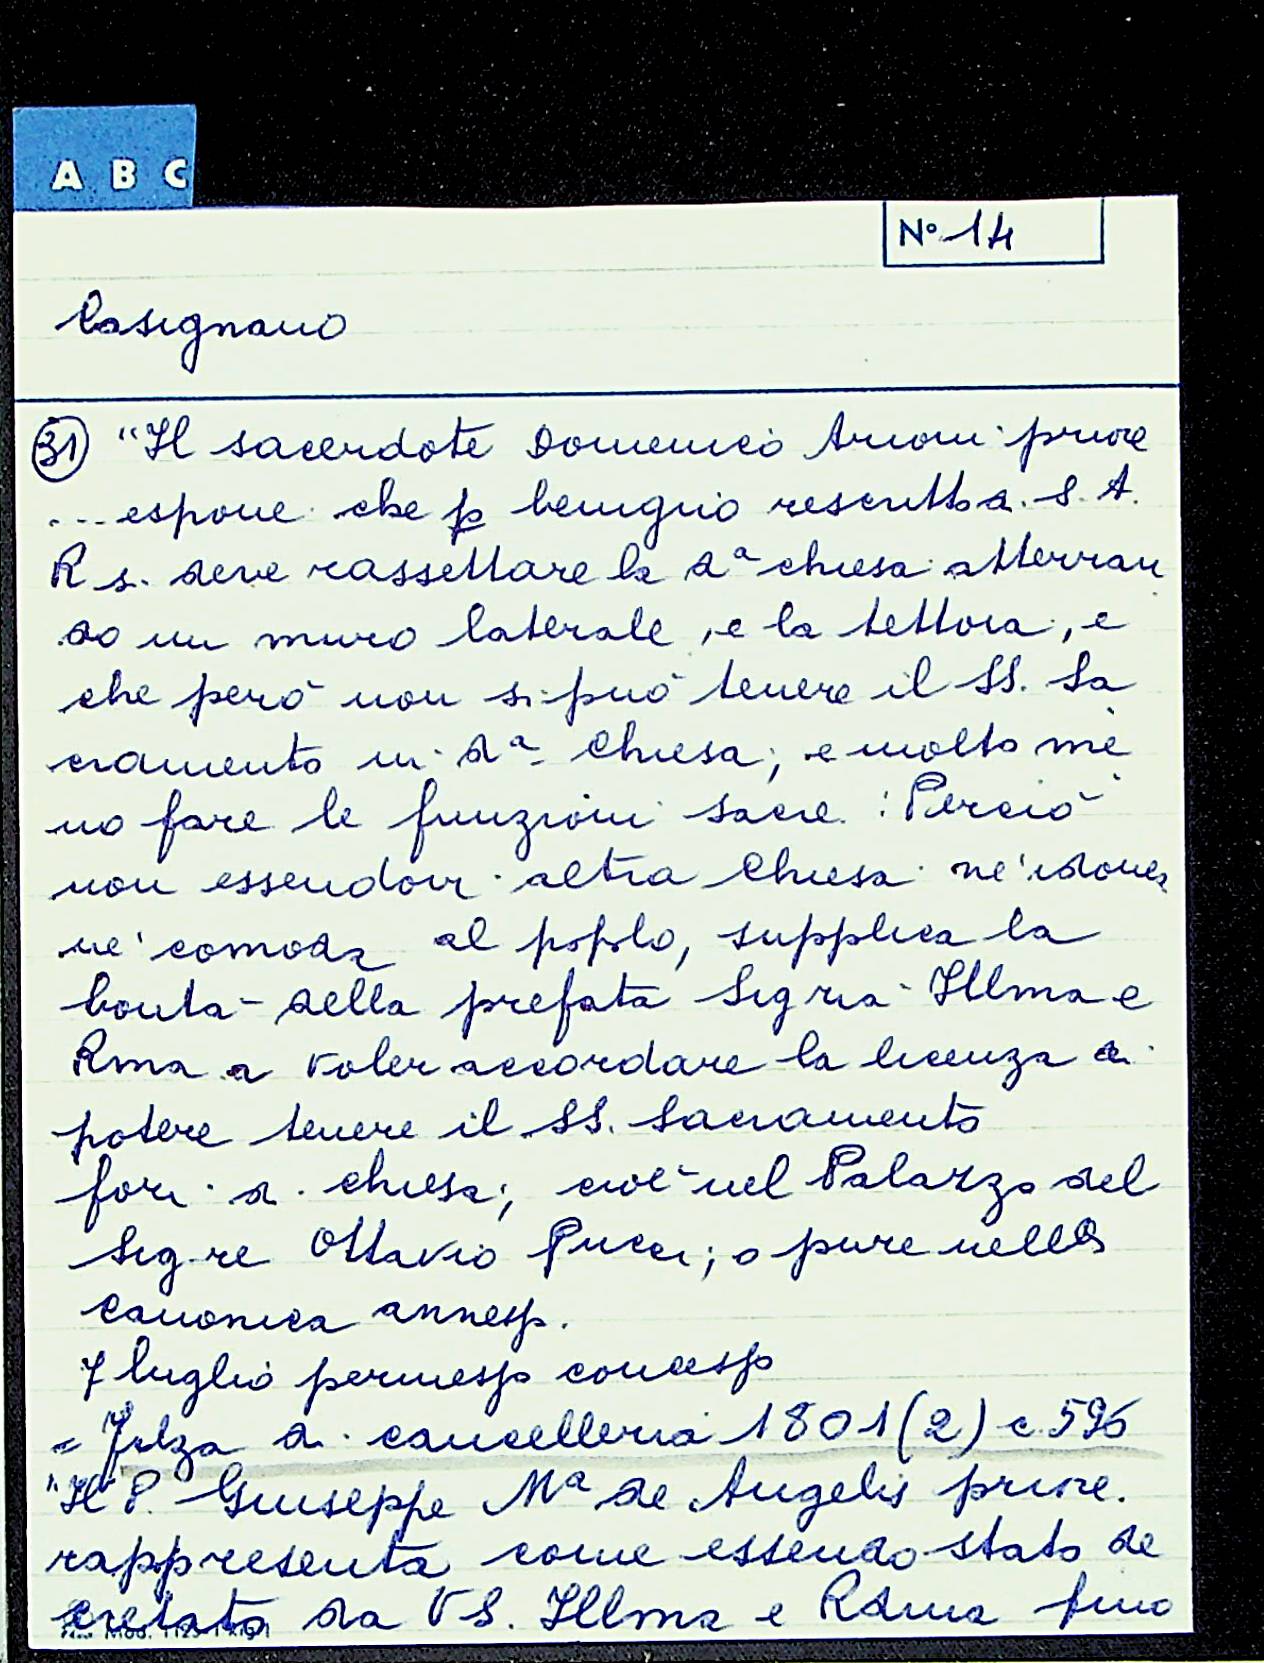 A B C
N° 14
Casignano
31 "Il sacerdote Domenico Arioni priore
... espone che p benigno rescritto a. S. A.
R si deve rassettare la da chiesa atterran
do un muro laterale, e la tettoia, e
che però non si può tenere il SS. Sa
cramento in da Chiesa; e molto me
no fare le funzioni sacre: Perciò
non essendovi altra Chiesa nè idonea
nè comoda al popolo, supplica la
bontà della prefata Sigria Illma e
Rma a voler accordare la licenza di
potere tenere il SS. Sacramento
fori di chiesa; cioè nel Palazzo del
Sig.re Ottavio Pucci; o pure nella
canonica annessa.
7 luglio permesso concesso
= Filza di cancelleria 1801 (2) c. 596
"Il P. Giuseppe Ma de Angelis priore.
rappresenta come essendo stato de
cretato da VS. Illma e Rdma fino